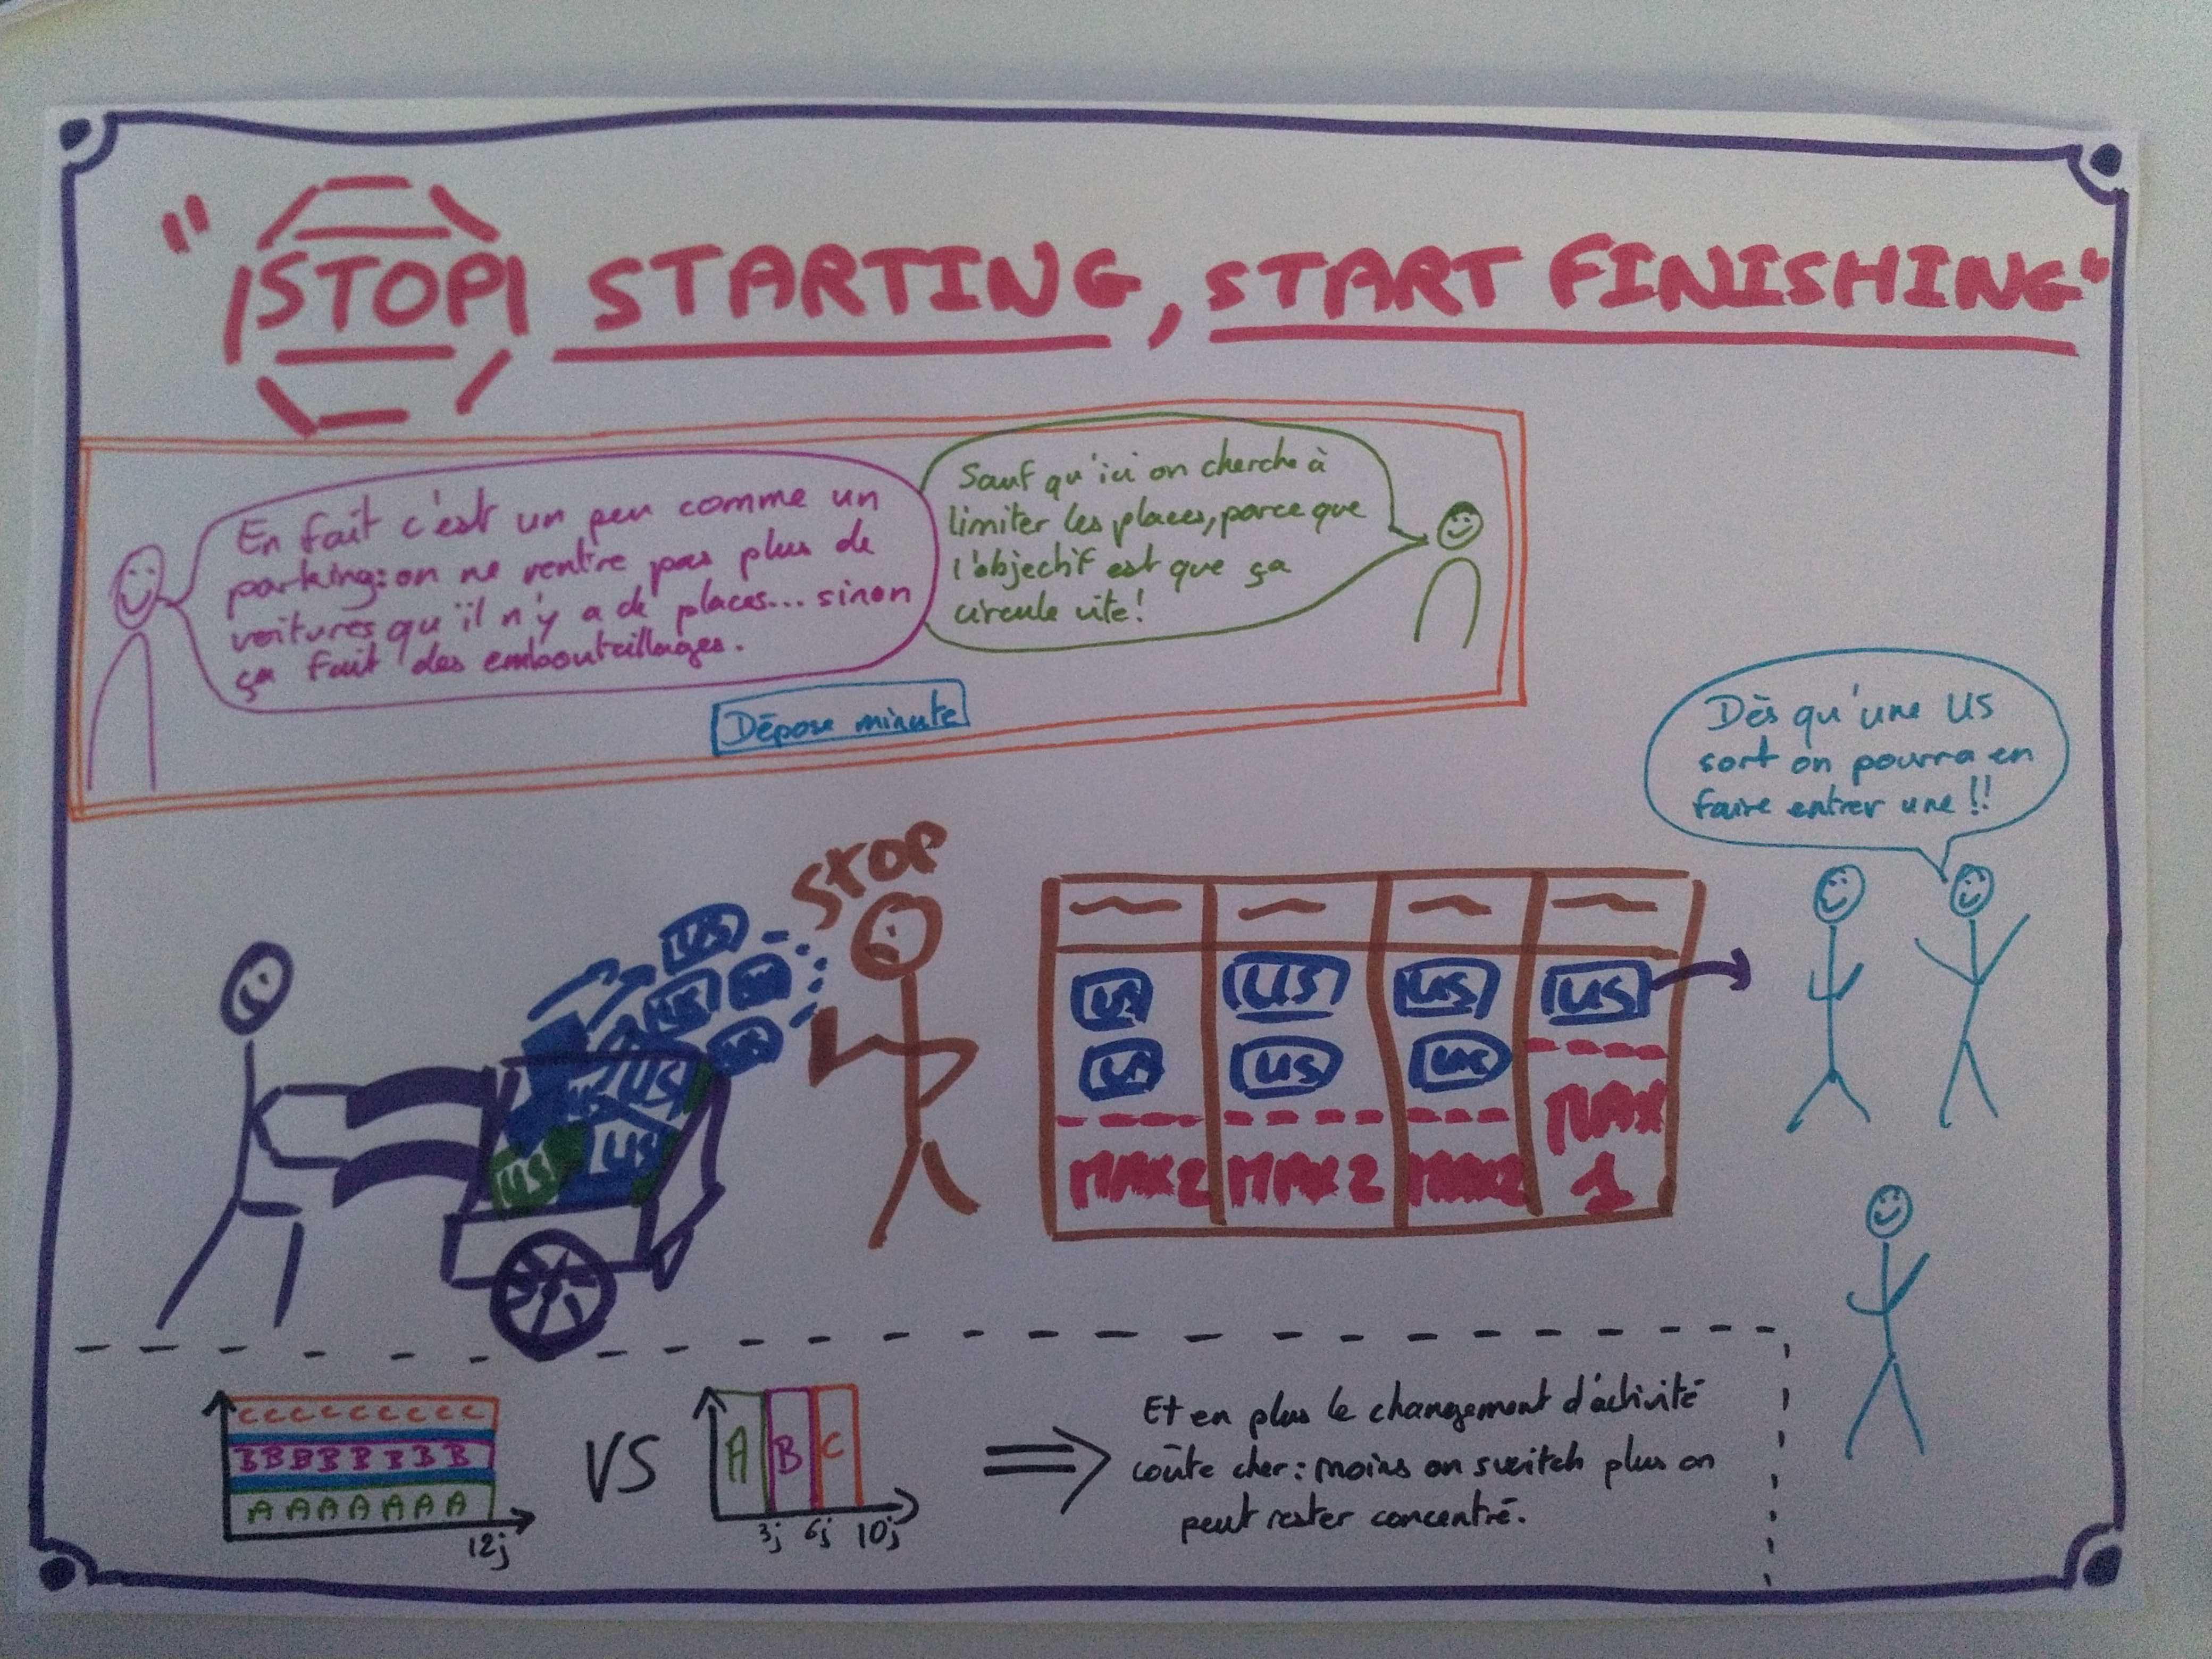 "STOP STARTING, START FINISHING"
En fait c'est un peu comme un
parking: on ne rentre pas plus de
voitures qu'il n'y a de places... sinon
ça fait des embouteillages.
Sauf qu'ici on cherche à
limiter les places, parce que
l'objectif est que ça
circule vite!
Dépose minute
Dès qu'une US
sort on pourra en
faire entrer une!!
STOP
US
US
US
US
US
US
US
US US US US
US US US
MAX 2 MAX 2 MAX 2 MAX
1
C C C C C C C C C
B B B B B B B B
A A A A A A A
12j
VS
A B C
3j 6j 10j
Et en plus le changement d'activité
coûte cher: moins on switch plus on
peut rester concentré.